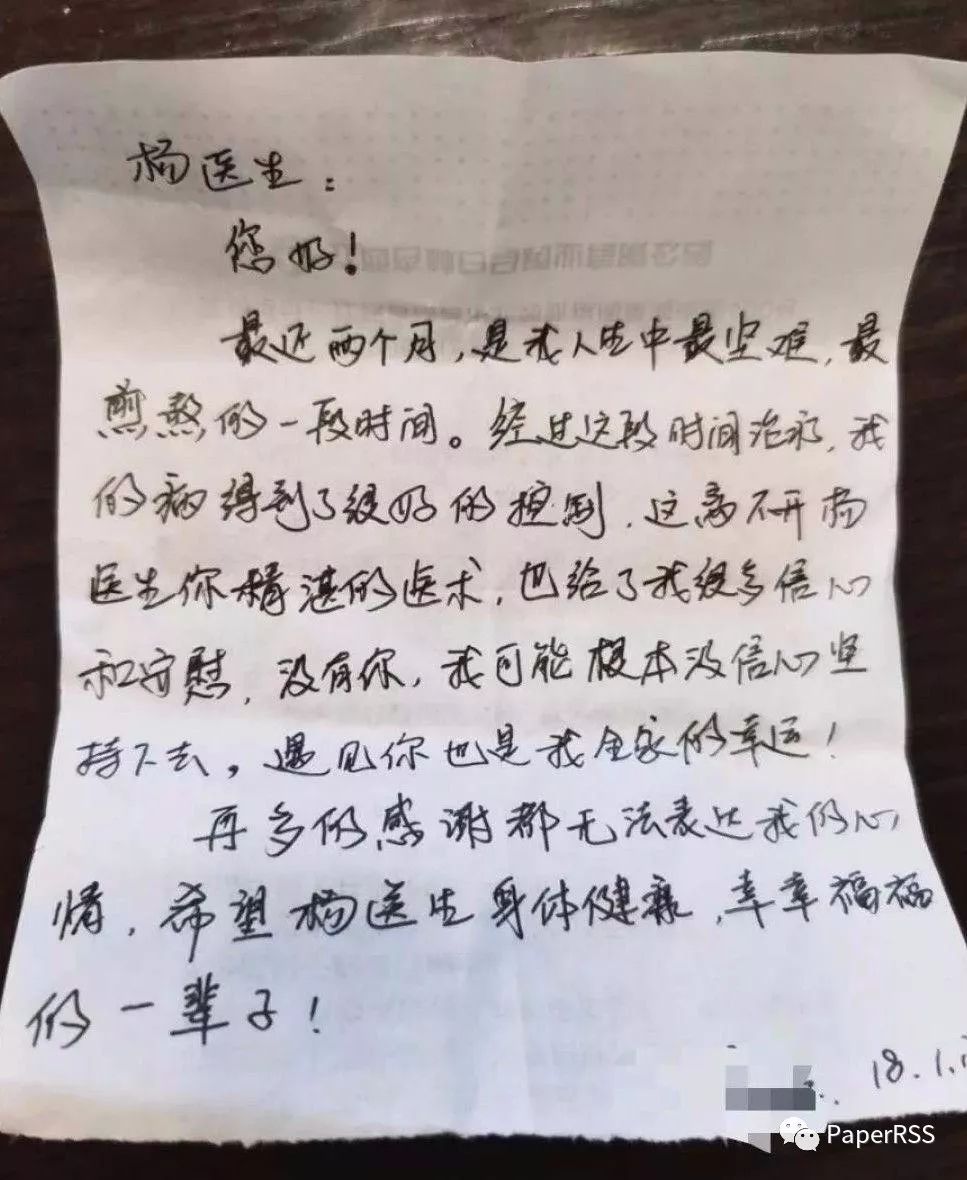 杨医生：
您好！
最近两个月，是我人生中最坚难，最
煎熬的一段时间。经过这段时间治疗，我
的病得到了很好的控制，这离不开杨
医生你精湛的医术，也给了我很多信心
和安慰，没有你，我可能根本没信心坚
持下去。遇见你也是我全家的幸运！
再多的感谢都无法表达我的心
情，希望杨医生身体健康，幸幸福福
的一辈子！
18.1.
PaperRSS